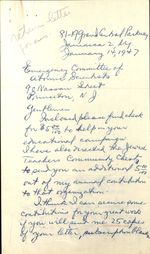 81-09 Grand Central Parkway
Jamaica 2, N.Y.
January 14, 1947
Emergency Committee of
Atomic Scientists
90 Nassau Street
Princeton, N.J.
Gentlemen
Enclosed please find check
for to help in your
educational campaign.
I have also requested the Jewish
Teachers Community Chest
to send you an additional
out of my annual contribution
to that organization.
I think I can secure some
contributions for your great work
if you will send me 25 copies
of your letter, subscription blank